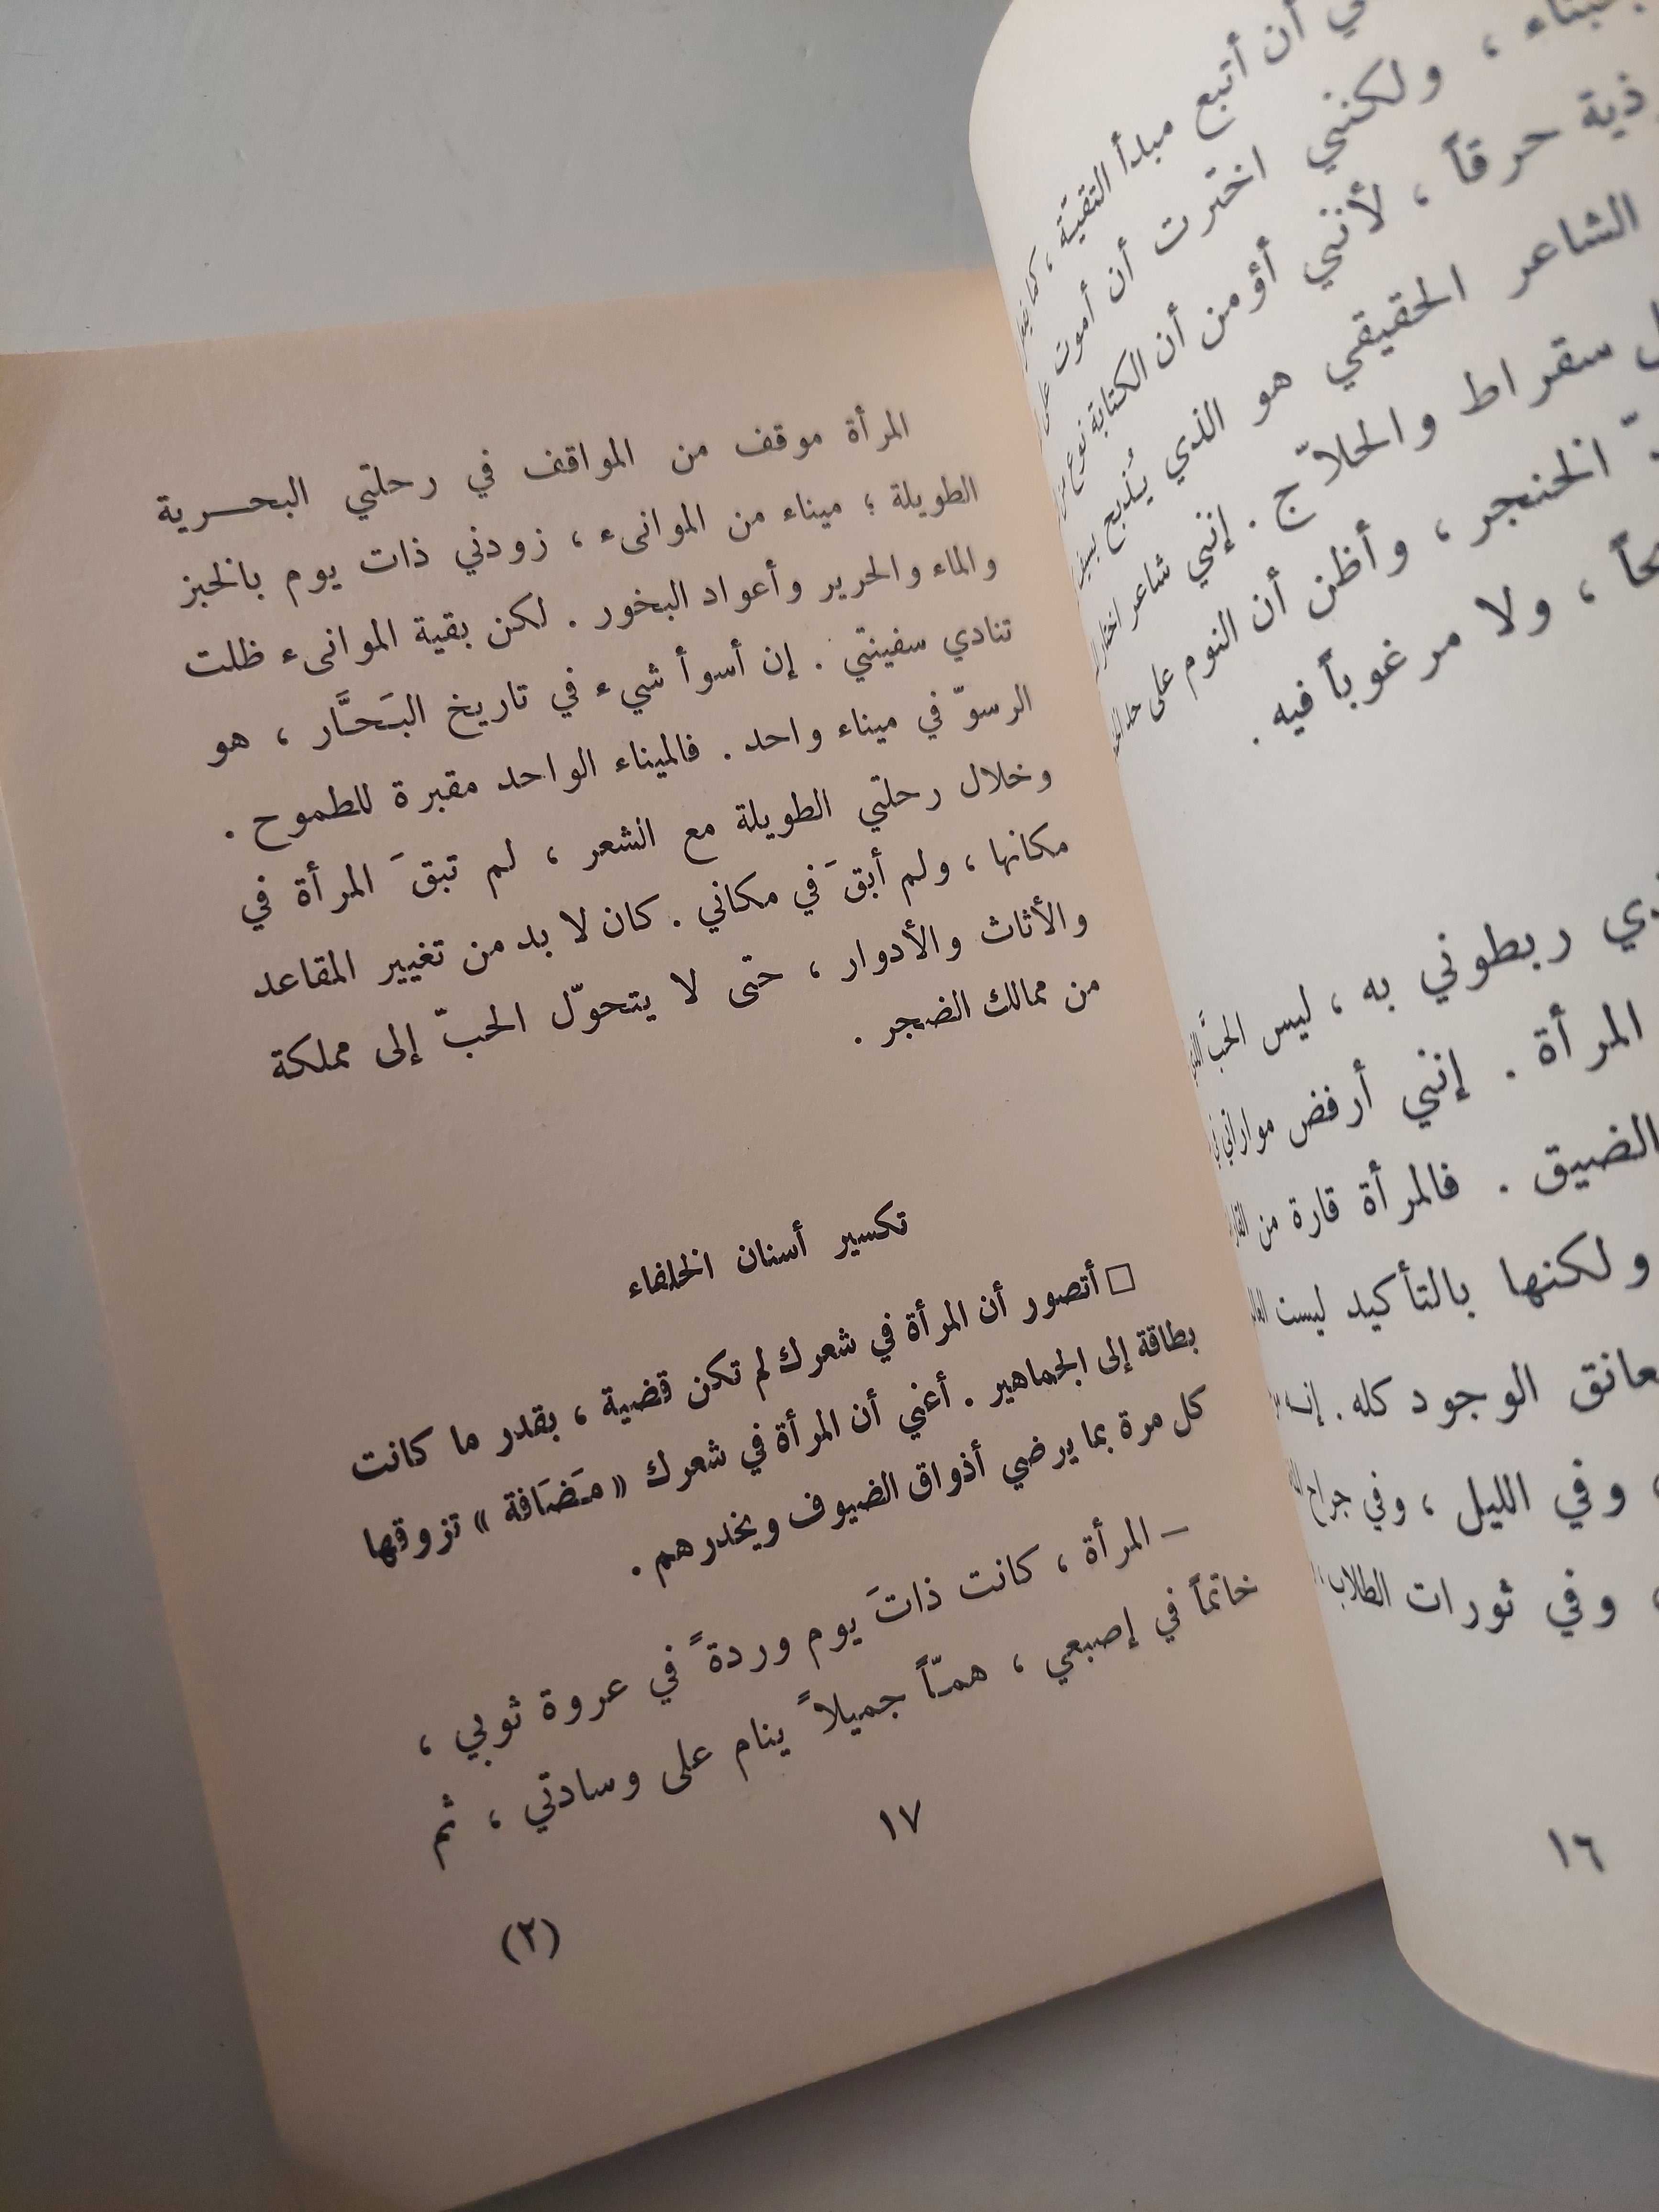 ي أن أتبع مبدأ التقية ، كما
، ولكنني اخترت أن أموت على
حرقاً ، لأنني أؤمن أن الكتابة نوع
الشاعر الحقيقي هو الذي يُذبح
سقراط والحلاّج . إنني شاعر اختار
الخنجر ، وأظن أن النوم على حد
، ولا مرغوباً فيه .
ربطوني به ، ليس الحبَّ
المرأة . إنني أرفض
الضيق . فالمرأة قارة من
ولكنها بالتأكيد ليست
الوجود كله .
، وفي الليل ، وفي جراح
، وفي ثورات الطلاب
١٦
المرأة موقف من المواقف في رحلتي البحـــرية
الطويلة ؛ ميناء من الموانىء ، زودني ذات يوم بالخبز
والماء والحرير وأعواد البخور . لكن بقية الموانىء ظلت
تنادي سفينتي . إن أسوأ شيء في تاريخ البَحَّار ، هو
الرسوّ في ميناء واحد . فالميناء الواحد مقبرة للطموح .
وخلال رحلتي الطويلة مع الشعر ، لم تبقَ المرأة في
مكانها ، ولم أبقَ في مكاني . كان لا بد من تغيير المقاعد
والأثاث والأدوار ، حتى لا يتحوّل الحبّ إلى مملكة
من ممالك الضجر .
تكسير أسنان الخلفاء
□ أتصور أن المرأة في شعرك لم تكن قضية ، بقدر ما كانت
بطاقة إلى الجماهير . أعني أن المرأة في شعرك « مَضَافة » تزوقها
كل مرة بما يرضي أذواق الضيوف ويخدرهم .
– المرأة ، كانت ذاتَ يوم وردةً في عروة ثوبي ،
خاتماً في إصبعي ، همّاً جميلاً ينام على وسادتي ، ثم
١٧
(٢)